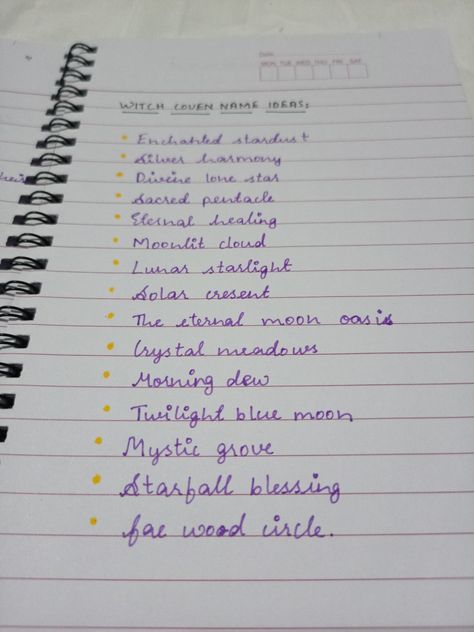 Date
MON TUE WED THU FRI SAT
WITCH COVEN NAME IDEAS:
• Enchanted stardust
• Silver harmony
• Divine lone star
• Sacred pentacle
• Eternal healing
• Moonlit cloud
• Lunar starlight
• Solar cresent
• The eternal moon oasis
• Crystal meadows
• Morning dew
• Twilight blue moon
• Mystic grove
• Starfall blessing
• fae wood circle.